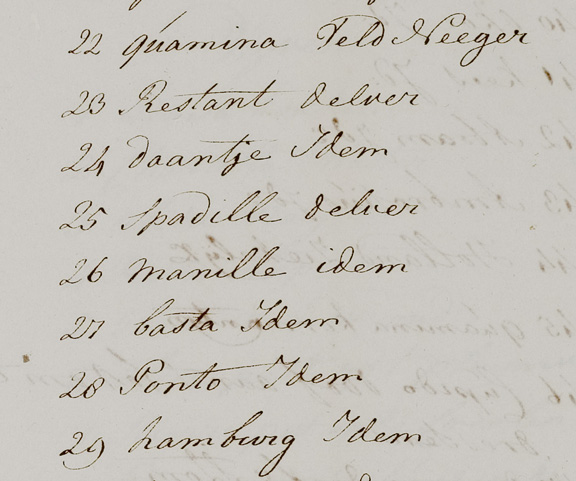 22 quamina Veld Neeger
23 Restant delver
24 daantje Idem
25 Spadille delver
26 manille idem
27 basta Idem
28 Ponto Idem
29 hamburg Idem